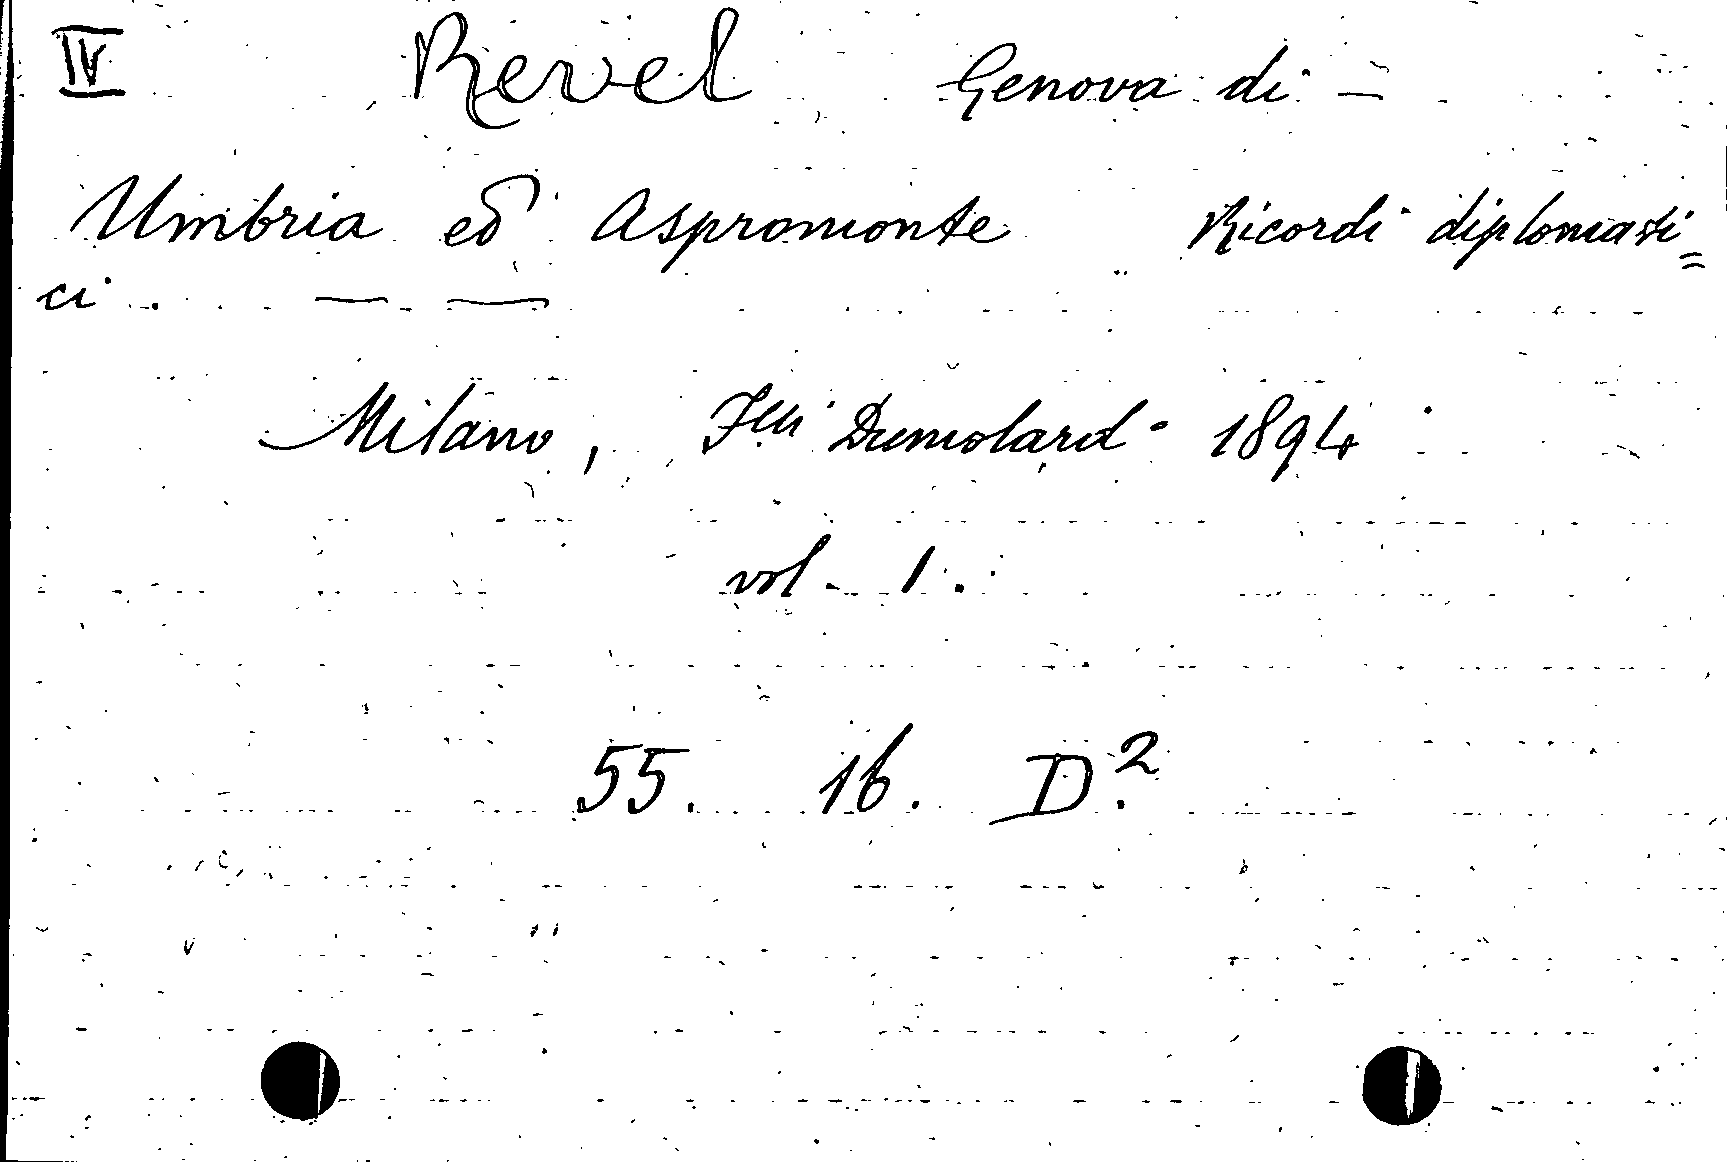 IV Revel Genova di –
Umbria ed Aspromonte Ricordi diplomati=
ci. — —
Milano, Flli Dumolard - 1894
vol. 1.
55. 16. D.2